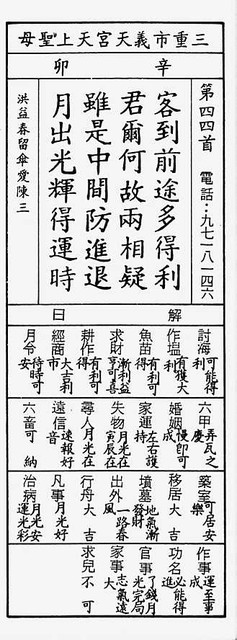 三重市義天宮天上聖母
辛卯
第四四首 電話:九七一八一四六
客到前途多得利
君爾何故兩相疑
雖是中間防進退
月出光輝得運時
洪益春留傘愛陳三
解曰
討海 可能得利
作塭 有獲大利
魚苗 有利可得
求財 漸利益亨可喜
耕作 有利可得
經商 大吉利市
月令 待時可安
六甲 弄瓦之慶
婚姻 慢即可成
家運 左右護持
失物 月光在寅辰在
尋人 月光在
遠信 速報好音
六畜 可納
築室 可居安樂
移居 大吉
墳墓 地氣漸發財
出外 一路春風
行舟 大吉
凡事 月光好
治病 月光安運光彩
作事 運至事成
功名 必能得進
官事 了錢月光完局
家事 志氣遠大
求兒 不可